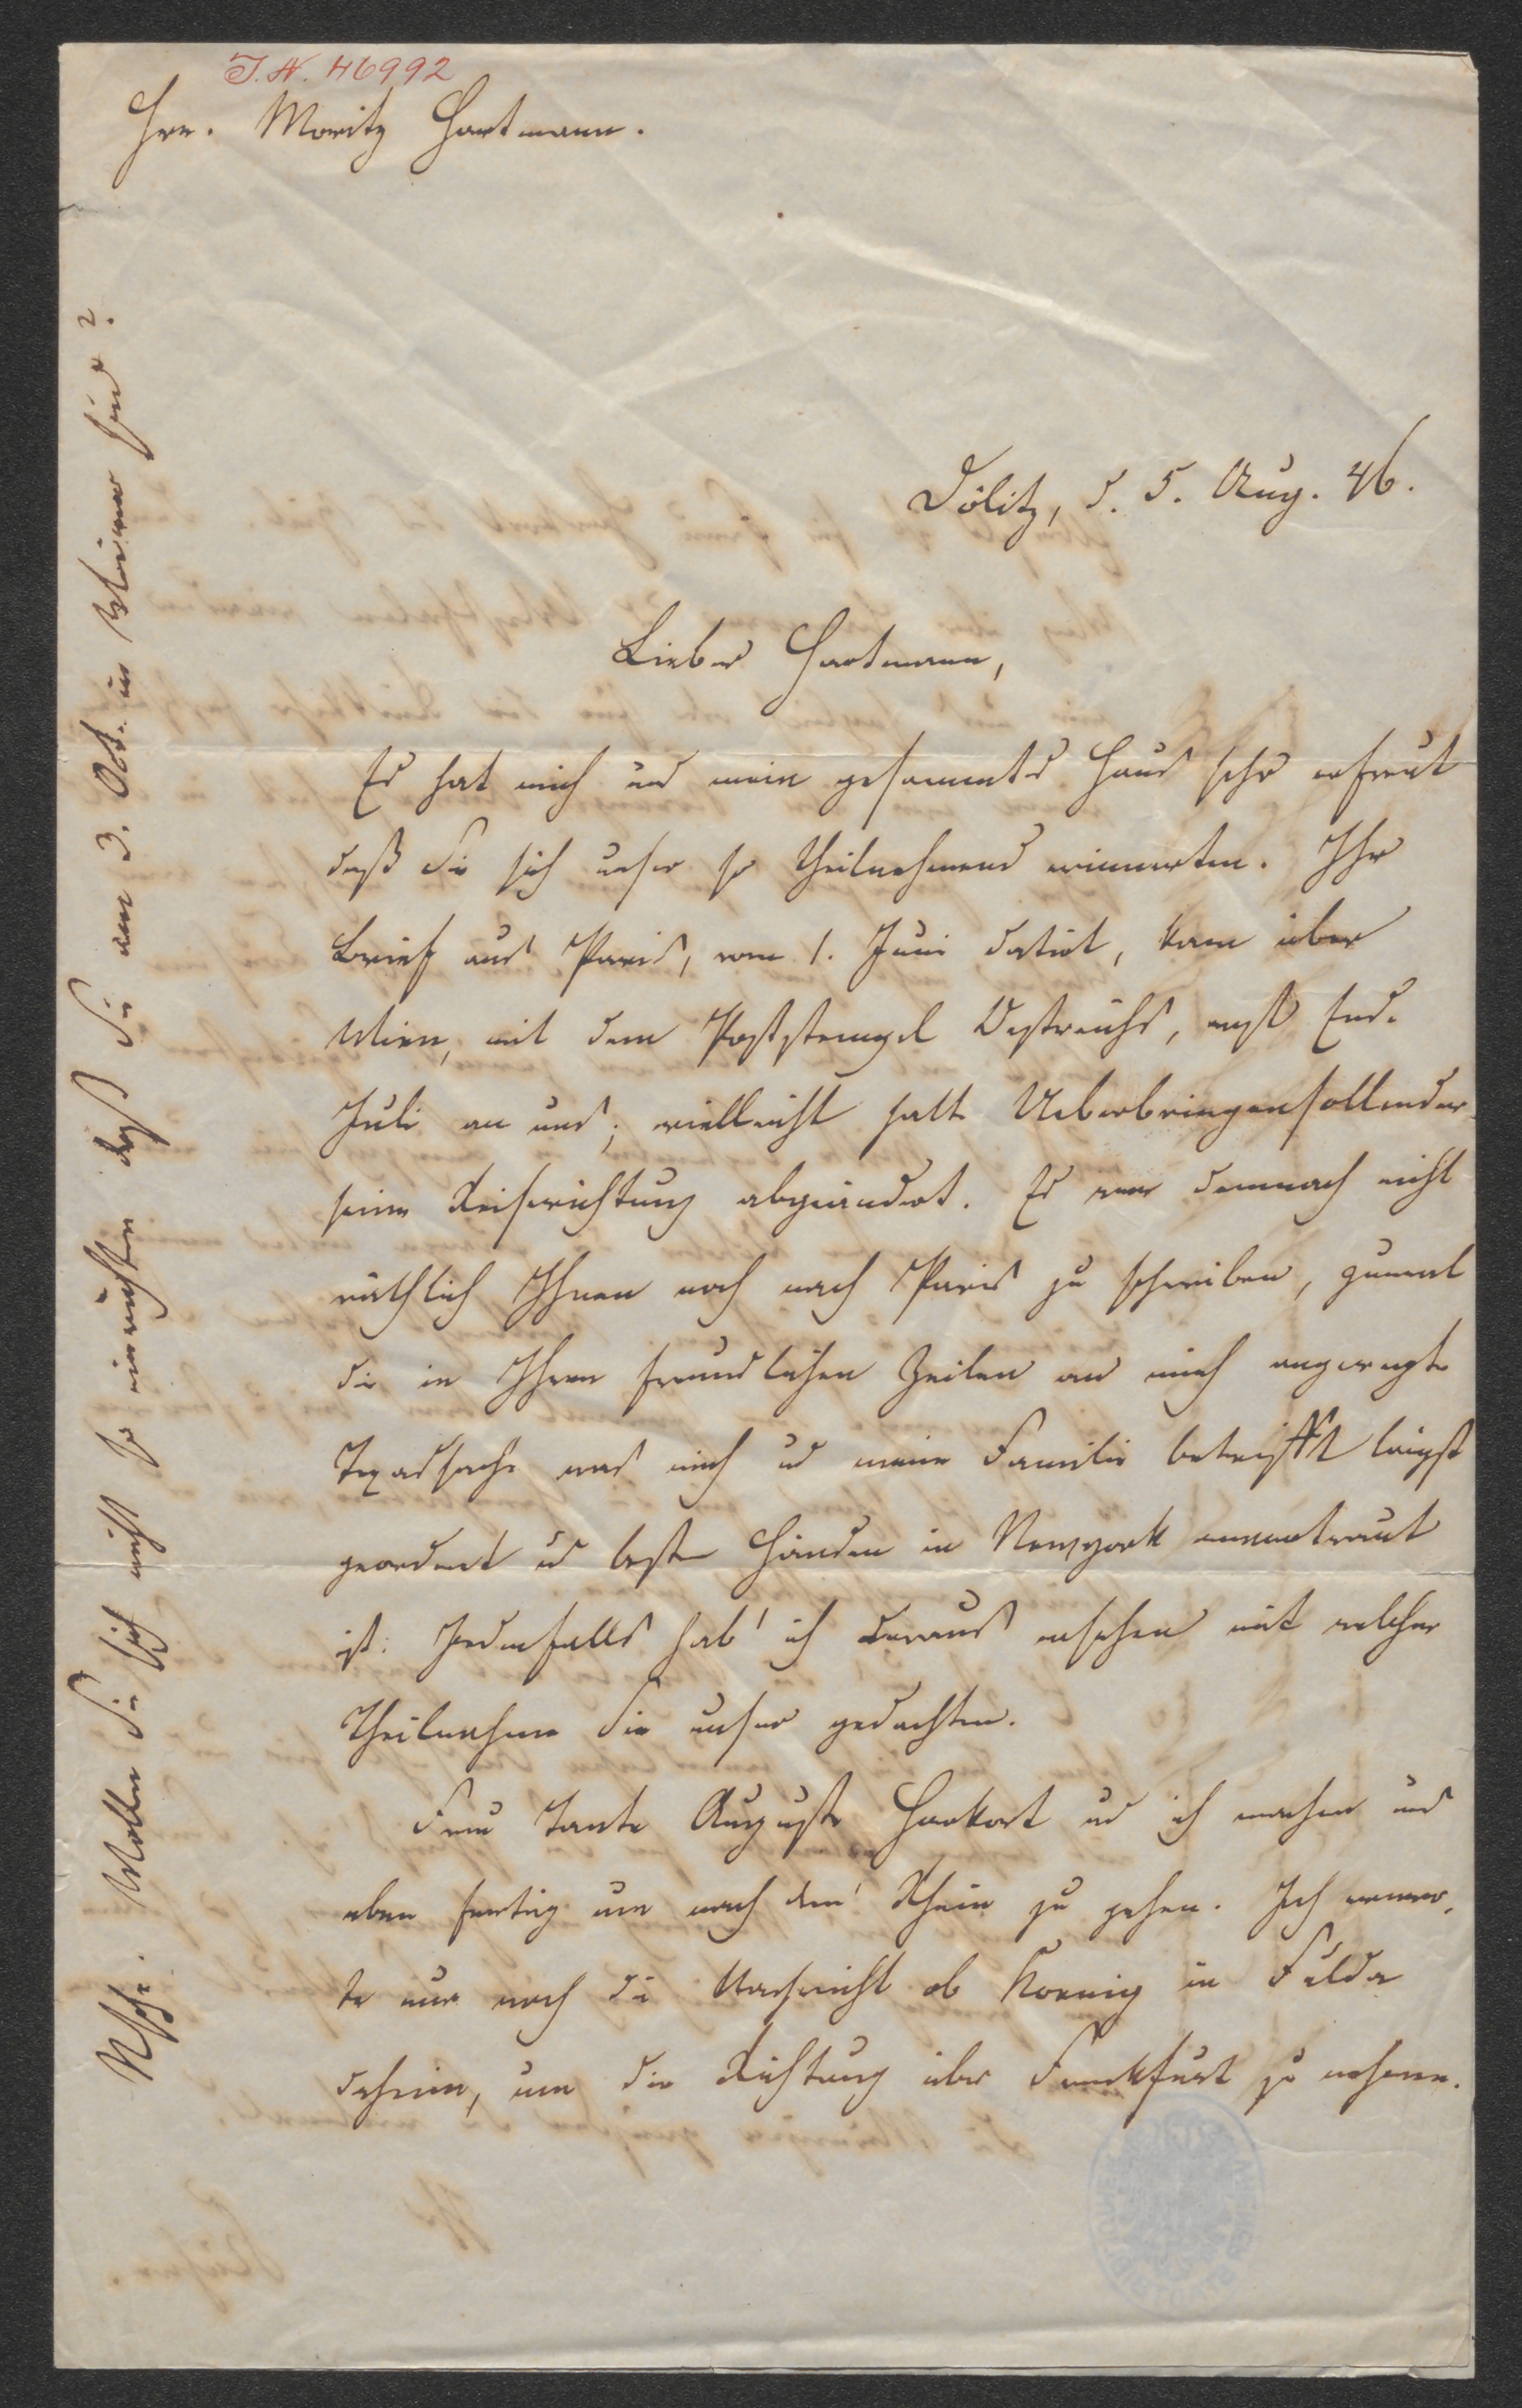 I.N. 46992
Hrn. Moritz Hartmann.
Dölitz, d. 5. Aug. 46.
Lieber Hartmann,
Es hat mich und mein gesammtes Haus sehr erfreut
daß Sie sich unser so theilnehmend erinnerten. Ihr
Brief aus Paris, vom 1. Juni datirt, kam über
Wien, mit dem Poststempel Oestreichs, erst Ende
Juli an uns; vielleicht hatte Ueberbringensollender
seine Reiserichtung abgeändert. Es war demnach nicht
räthlich Ihnen noch nach Paris zu schreiben, zumal
die in Ihren freundlichen Zeilen an mich angeregte
Texassache was mich u meine Familie betrifft längst
geordnet u besten Händen in Newyork anvertraut
ist. Jedenfalls hab' ich daraus ersehen mit welcher
Theilnahme Sie unser gedachten.
Frau Tante Auguste Harkort u ich machen uns
eben fertig um nach dem Rhein zu gehen. Ich erwar-
te nur noch die Nachricht ob Koenig in Fulda
daheim, um die Richtung über Frankfurt zu nehmen.
NSchr. Wollen Sie sich nicht so einrichten daß Sie am 3. Oct. in Weimar sind?